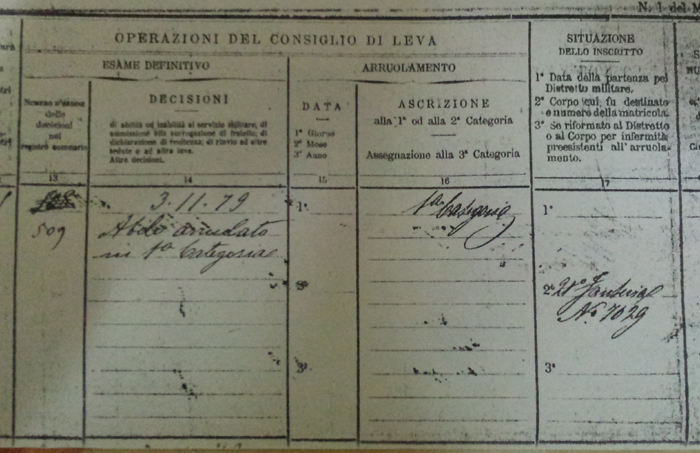 N. 1 del M
OPERAZIONI DEL CONSIGLIO DI LEVA
SITUAZIONE
DELLO INSCRITTO
ESAME DEFINITIVO
ARRUOLAMENTO
1ª Data della partenza pel
Distretto militare.
2º Corpo cui fu destinato
e numero della matricola.
3º Se riformato al Distretto
o al Corpo per infermità
preesistenti all'arruola-
mento.
Numero d'ordine
delle
decisioni
nel
registro sommario
DECISIONI
di abilità od inabilità al servizio militare; di
ammissione alla surrogazione di fratello; di
dichiarazione di renitenza; di rinvio ad altre
sedute o ad altra leva.
Altre decisioni.
DATA
1º Giorno
2º Mese
3º Anno
ASCRIZIONE
alla 1ª od alla 2ª Categoria
Assegnazione alla 3ª Categoria
13
14
15
16
17
3.11.79
1º
1ª Categoria
1º
509
Abile arruolato
in 1ª Categoria
2º
2º 21º Fanteria
Nº 7029
3º
3º